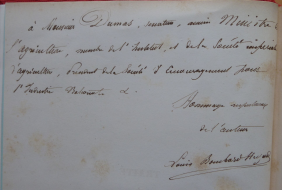 à Monsieur Dumas, sénateur, ancien Ministre
l'agriculture, membre de l'Institut, et de la Société impériale
d'agriculture, Président de la Société d'Encouragement pour
l'Industrie Nationale &.
Hommage respectueux
de l'auteur
Louis